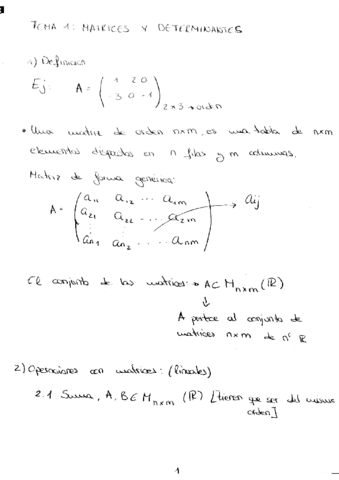 TEMA 1: MATRICES Y DETERMINANTES
1) Definición
Ej: A = ( 1 2 0
-3 0 -1 ) 2x3 → orden
• Una matriz de orden nxm, es una tabla de nxm
elementos dispuestos en n filas y m columnas.
Matriz de forma general:
A = ( a11 a12 ... a1m → aij
a21 a22 ... a2m
⋮
an1 an2 ... anm )
El conjunto de las matrices: → A ⊂ Mnxm (ℝ)
↓
A pertece al conjunto de
matrices nxm de nº ℝ
2) Operaciones con matrices: (lineales)
2.1 Suma, A, B ∈ Mnxm (ℝ) [tienen que ser del mismo
orden]
1